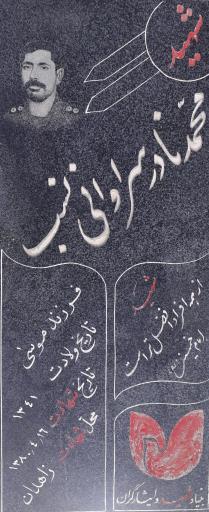 شهید
محمد نادر سراوانی نسب
فرزند موسی
تاریخ ولادت ۱۳۴۱
تاریخ شهادت ۱۳۸۰،۴،۱۲
محل شهادت زاهدان
شهید
از همه افراد افضل تر است
امام خمینی
بنیاد شهید و ایثارگران